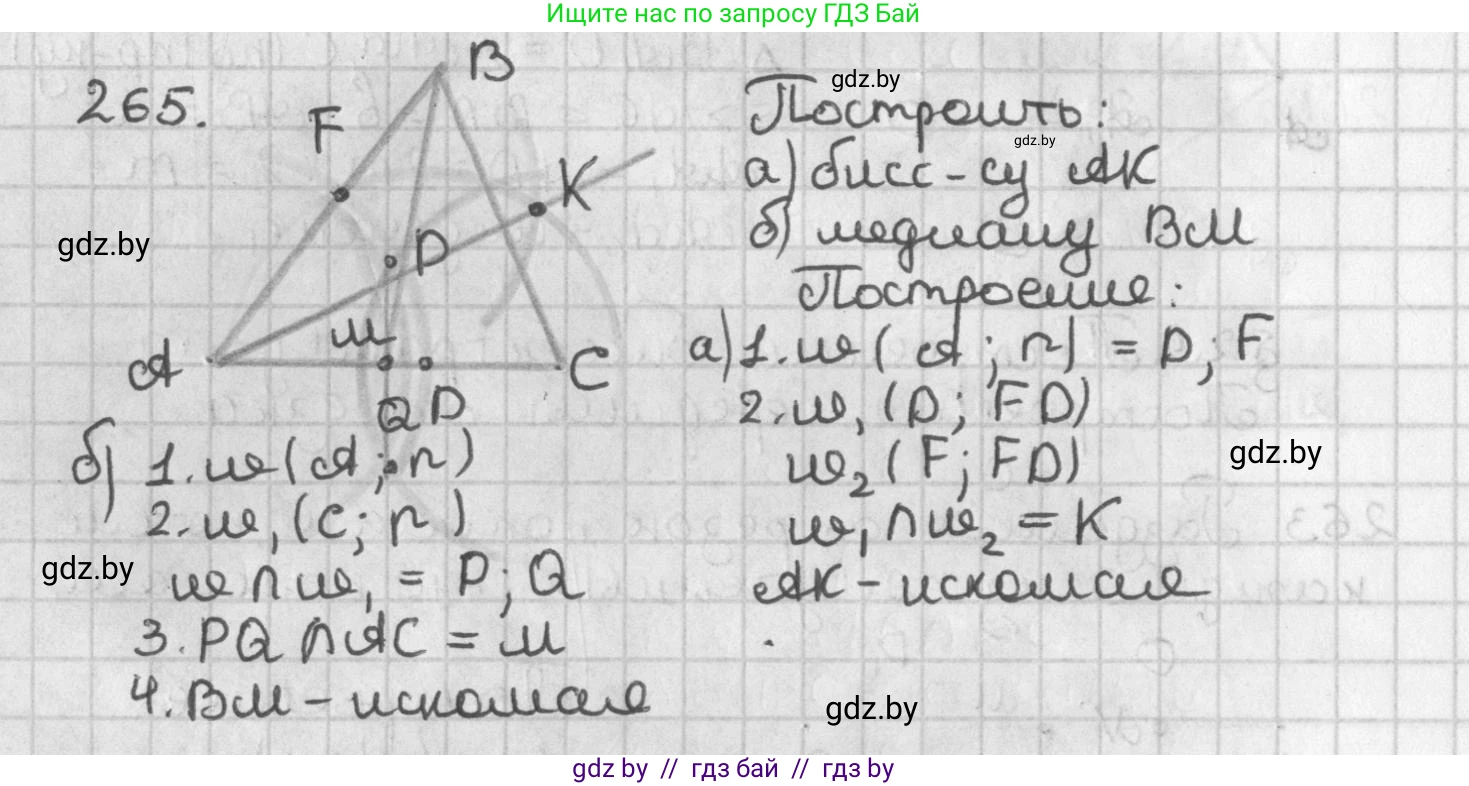 Ищите нас по запросу ГДЗ Бай
265.
B
F
K
P
M
A
C
Q D
gdz.by
Построить:
gdz.by
а) бисс-су AK
б) медиану BM
Построение:
а) 1. ω(A; r) = D; F
2. ω₁(D; FD)
ω₂(F; FD)
gdz.by
ω₁∩ω₂ = K
AK - искомая
gdz.by
б) 1. ω(A; r)
2. ω₁(C; r)
gdz.by
ω∩ω₁ = P; Q
3. PQ∩AC = M
4. BM - искомая
gdz by // гдз бай // гдз by